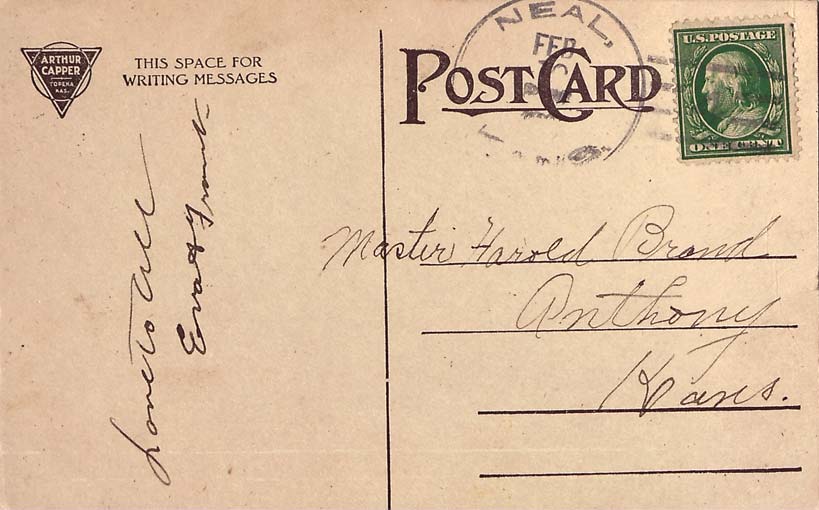 ARTHUR
CAPPER
TOPEKA
KAS.
THIS SPACE FOR
WRITING MESSAGES
Love to All
Eva & Frank
POST CARD
NEAL,
FEB
U.S. POSTAGE
ONE CENT
Master Harold Brand
Anthony
Kans.